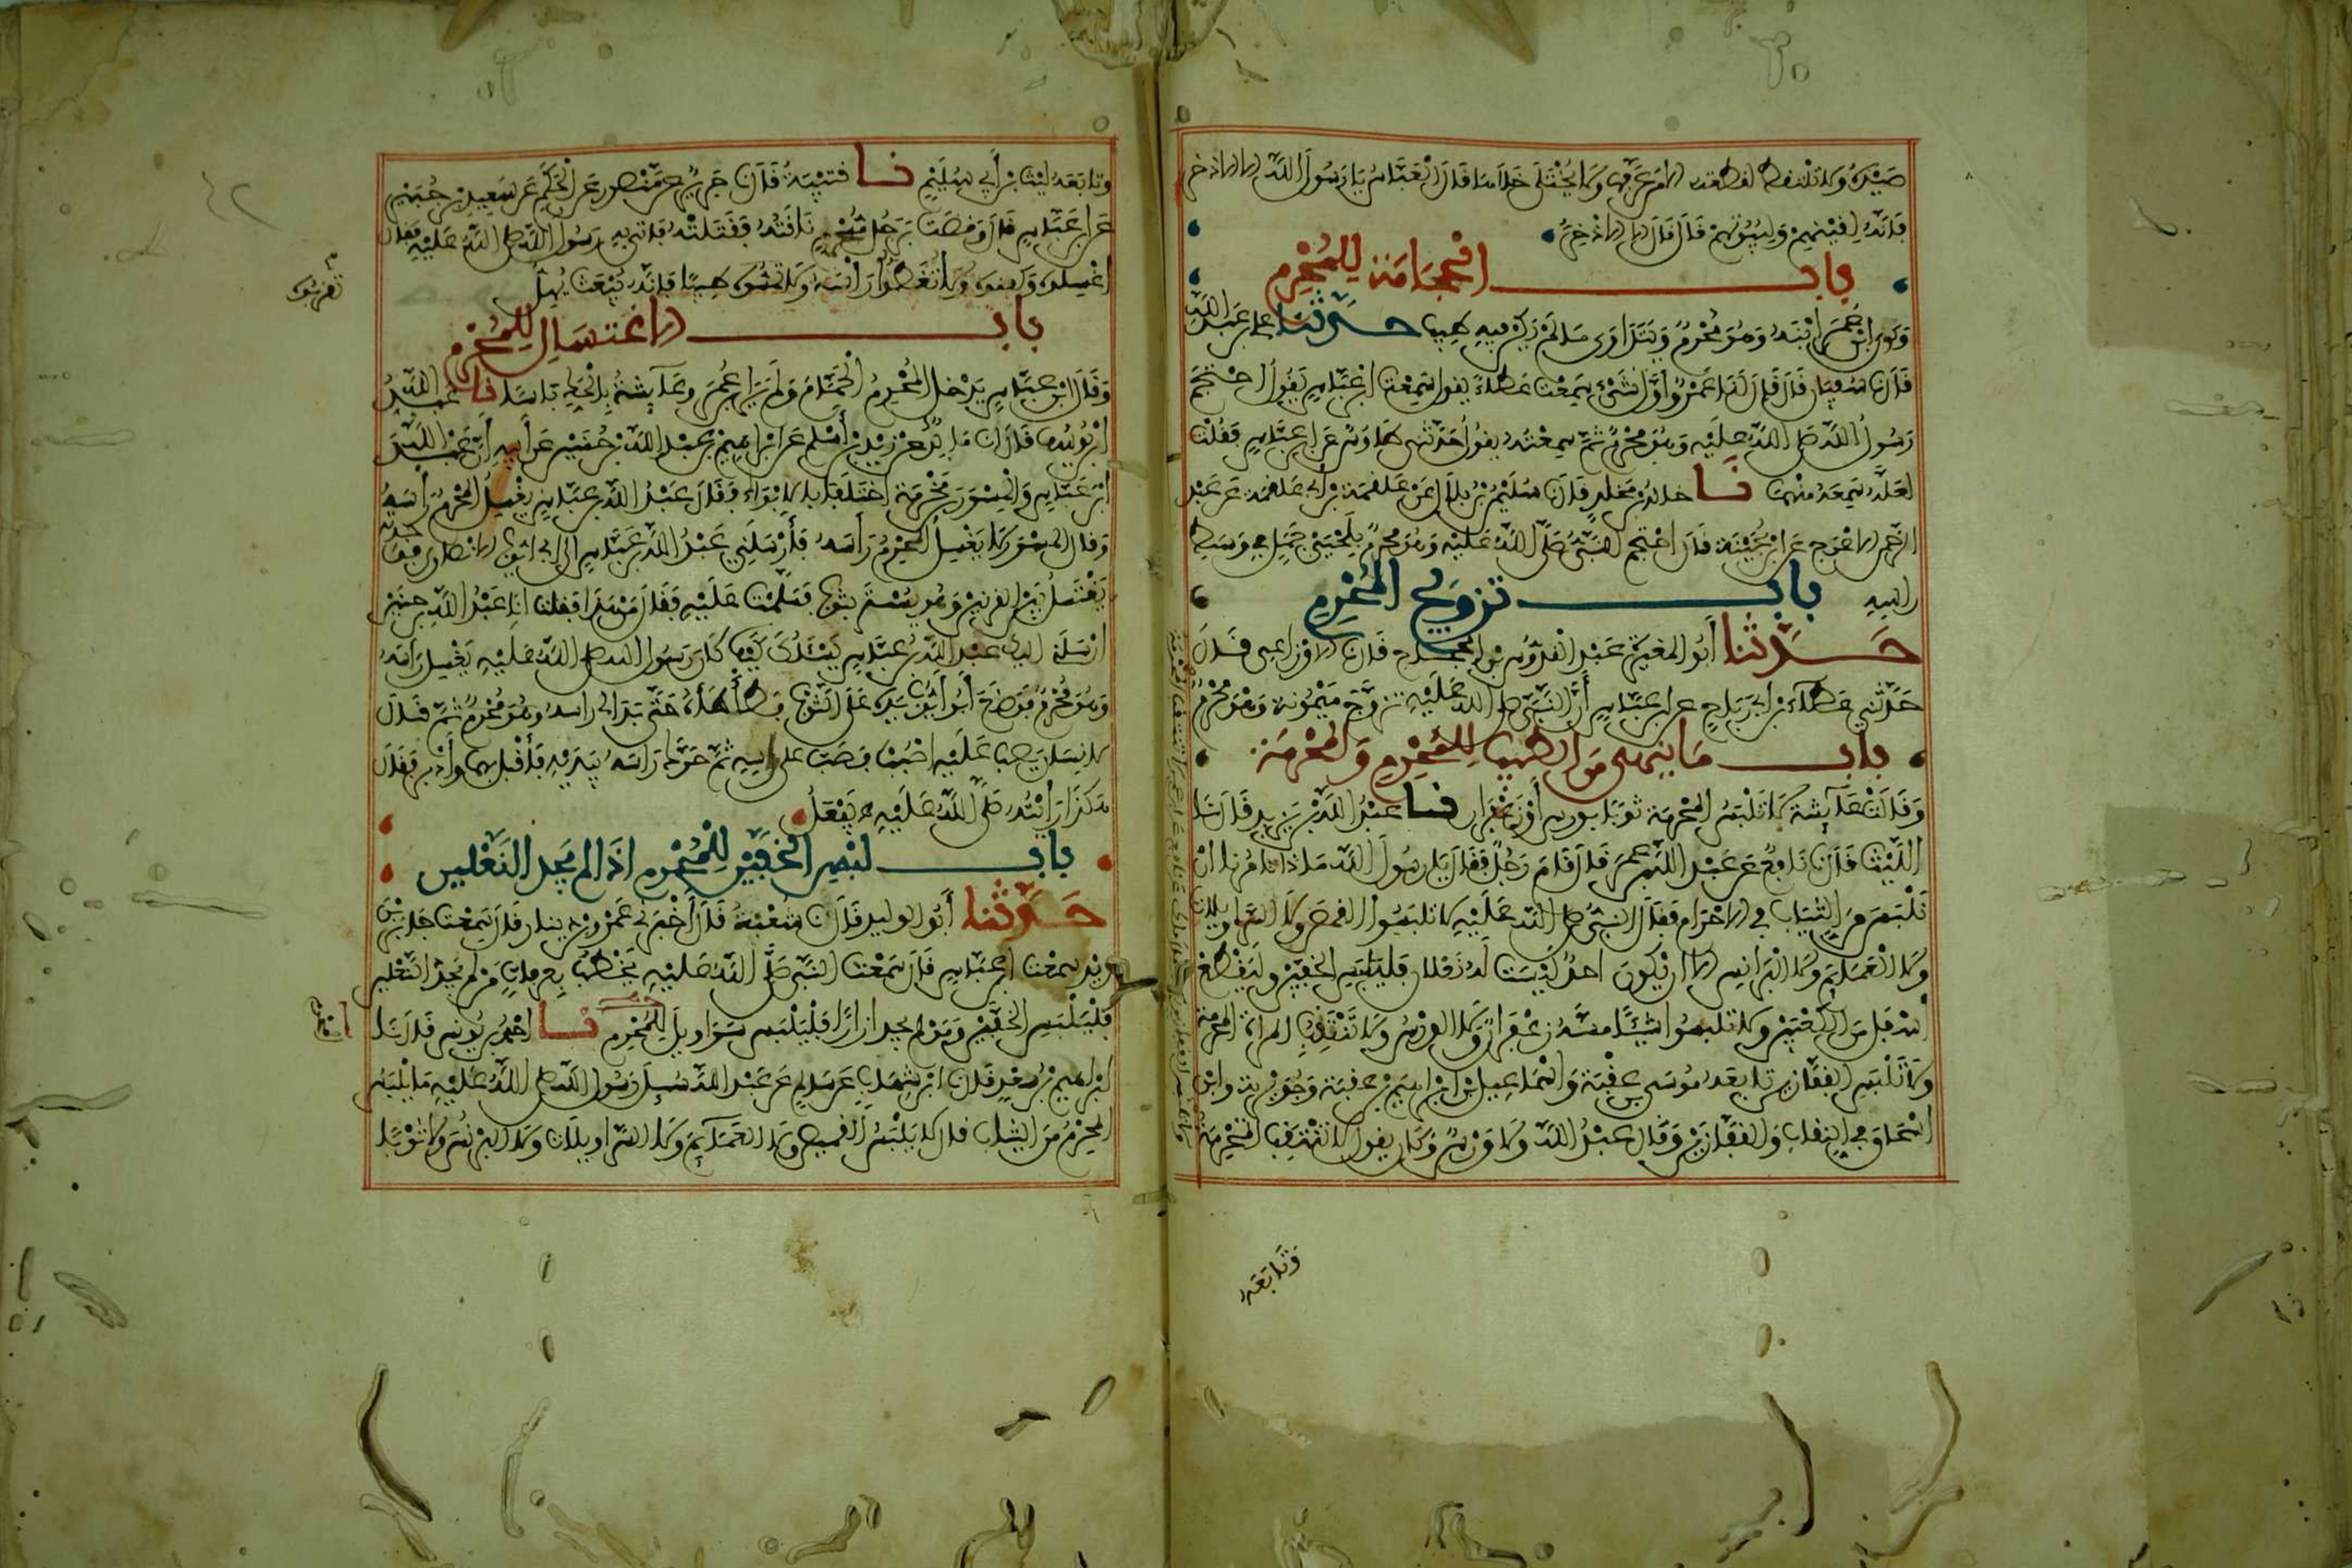 صَيْدُهُ وَلَا تُلْتَقَطُ لُقَطَتُهُ إِلَّا مَنْ عَرَّفَهَا وَلَا يُخْتَلَى خَلَاهَا قَالَ الْعَبَّاسُ يَا رَسُولَ اللَّهِ إِلَّا الْإِذْخِرَ
فَإِنَّهُ لِقَيْنِهِمْ وَلِبُيُوتِهِمْ قَالَ قَالَ إِلَّا الْإِذْخِرَ
باب الحجامة للمحرم
وَكَوَى ابْنُ عُمَرَ ابْنَهُ وَهُوَ مُحْرِمٌ وَيَتَدَاوَى مَا لَمْ يَكُنْ فِيهِ طِيبٌ حدثنا علي بن عبد اللَّه
قَالَ نا سُفْيَانُ قَالَ قَالَ لَنَا عَمْرٌو أَوَّلُ شَيْءٍ سَمِعْتُ عَطَاءً يقول سَمِعْتُ ابْنَ عَبَّاسٍ يَقُولُ احْتَجَمَ
رَسُولُ اللَّهِ صلى اللَّهُ عَلَيْهِ وَهُوَ مُحْرِمٌ ثُمَّ سَمِعْتُهُ يقول حَدَّثَنِي طَاوُسٌ عَنِ ابْنِ عَبَّاسٍ فَقُلْتُ
لَعَلَّهُ سَمِعَهُ مِنْهُمَا نا خَالِدُ بْنُ مَخْلَدٍ قَالَ نا سُلَيْمَنُ بْنُ بِلَالٍ عَنْ عَلْقَمَةَ بْنِ أَبِي عَلْقَمَةَ عَنْ عَبْدِ
الرَّحْمَنِ الْأَعْرَجِ عَنِ ابْنِ بُحَيْنَةَ قَالَ احْتَجَمَ النَّبِيُّ صَلَّى اللَّهُ عَلَيْهِ وَهُوَ مُحْرِمٌ بِلَحْيَيْ جَمَلٍ فِي وَسَطِ
رَأْسِهِ باب تزويج المحرم
حدثنا أَبُو الْمُغِيرَةِ عَبْدُ الْقُدُّوسِ بْنُ الْحَجَّاجِ قَالَ نا الْأَوْزَاعِي قَالَ
حَدَّثَنِي عَطَاءُ بْنُ أَبِي رَبَاحٍ عن ابن عَبَّاسٍ أَنَّ النَّبِيَّ صلى اللَّهُ عَلَيْهِ تَزَوَّجَ مَيْمُونَةَ وَهُوَ مُحْرِمٌ
باب مَا يُنْهَى مِنَ الطِّيبِ لِلْمُحْرِمِ وَالْمُحْرِمَةِ
وَقَالَتْ عَائِشَةُ لَا تَلْبَسُ الْمُحْرِمَةُ ثَوْبًا بِوَرْسٍ أَوْ زَعْفَرَانٍ نا عَبْدُ اللَّهِ بْنُ يَزِيدَ قَالَ نَا
اللَّيْثُ قَالَ نا نَافِعٌ عَنْ عَبْدِ اللَّهِ بْنِ عُمَرَ قَالَ قَامَ رَجُلٌ فَقَالَ يَا رَسُولَ اللَّهِ مَاذَا تَأْمُرُنَا أَنْ
نَلْبَسَ مِنَ الثِّيَابِ فِي الْإِحْرَامِ فَقَالَ النَّبِيُّ صلى اللَّهُ عَلَيْهِ لَا تَلْبَسُوا الْقُمُصَ وَلَا السَّرَاوِيلَاتِ
وَلَا الْعَمَائِمَ وَلَا الْبَرَانِسَ إِلَّا أَنْ يَكُونَ أَحَدٌ لَيْسَتْ لَهُ نَعْلَانِ فَلْيَلْبَسِ الْخُفَّيْنِ وَلْيَقْطَعْ
أَسْفَلَ مِنَ الْكَعْبَيْنِ وَلَا تَلْبَسُوا شَيْئًا مَسَّهُ زَعْفَرَانٌ وَلَا الْوَرْسُ وَلَا تَنْتَقِبُ الْمَرْأَةُ الْمُحْرِمَةُ
وَلَا تَلْبَسِ الْقُفَّازَيْنِ تَابَعَهُ مُوسَى بْنُ عُقْبَةَ وَإِسْمَاعِيلُ بْنُ إِبْرَاهِيمَ بْنِ عُقْبَةَ وَجُوَيْرِيَةُ وَابْنُ
إِسْحَاقَ فِي النِّقَابِ وَالْقُفَّازَيْنِ وَقَالَ عَبْدُ اللَّهِ وَلَا وَرْسٌ وَكَانَ يقول لَا تَنْتَقِبِ الْمُحْرِمَةُ
وَتَابَعَهُ
وَتَابَعَهُ لَيْثُ بْنُ أَبِي سُلَيْمٍ نا قُتَيْبَةُ قَالَ نا جَرِيرٌ عَنْ مَنْصُورٍ عَنِ الْحَكَمِ عَنْ سَعِيدِ بْنِ جُبَيْرٍ
عَنِ ابْنِ عَبَّاسٍ قَالَ وَقَصَتْ بِرَجُلٍ مُحْرِمٍ نَاقَتُهُ فَقَتَلَتْهُ فَأُتِيَ بِهِ رَسُولُ اللَّهِ صلى اللَّهُ عَلَيْهِ فَقَالَ
اغْسِلُوهُ وَكَفِّنُوهُ وَلَا تُغَطُّوا رَأْسَهُ وَلَا تُقَرِّبُوهُ طِيبًا فَإِنَّهُ يُبْعَثُ يُهِلُّ
تقربوه
باب الاغتسال للمحرم
وَقَالَ ابْنُ عَبَّاسٍ يَدْخُلُ الْمُحْرِمُ الْحَمَّامَ وَلَمْ يَرَ ابْنُ عُمَرَ وَعَائِشَةُ بِالْحَكِّ بَأْسًا نا عَبْدُ اللَّهِ
ابْنُ يُوسُفَ قَالَ نا مَالِكٌ عَنْ زَيْدِ بْنِ أَسْلَمَ عَنْ إِبْرَاهِيمَ بْنِ عَبْدِ اللَّهِ بْنِ حُنَيْنٍ عَنْ أَبِيهِ أَنَّ عَبْدَ اللَّهِ
ابْنَ عَبَّاسٍ وَالْمِسْوَرَ بْنَ مَخْرَمَةَ اخْتَلَفَا بِالْأَبْوَاءِ فَقَالَ عَبْدُ اللَّهِ بْنُ عَبَّاسٍ يَغْسِلُ الْمُحْرِمُ رَأْسَهُ
وَقَالَ الْمِسْوَرُ لَا يَغْسِلُ الْمُحْرِمُ رَأْسَهُ فَأَرْسَلَنِي عَبْدُ اللَّهِ بْنُ عَبَّاسٍ إِلَى أَبِي أَيُّوبَ الْأَنْصَارِي فَوَجَدْتُهُ
يَغْتَسِلُ بَيْنَ الْقَرْنَيْنِ وَهُوَ يُسْتَرُ بِثَوْبٍ فَسَلَّمْتُ عَلَيْهِ فَقَالَ مَنْ هَذَا فَقُلْتُ أَنَا عَبْدُ اللَّهِ بْنُ حُنَيْنٍ
أَرْسَلَنِي إِلَيْكَ عَبْدُ اللَّهِ بْنُ عَبَّاسٍ يَسْئَلُكَ كَيْفَ كَانَ رَسُولُ اللَّهِ صلى اللَّهُ عَلَيْهِ يَغْسِلُ رَأْسَهُ
وَهُوَ مُحْرِمٌ فَوَضَعَ أَبُو أَيُّوبَ يَدَهُ عَلَى الثَّوْبِ فَطَأْطَأَهُ حَتَّى بَدَا لِي رَأْسُهُ وَهُوَ مُحْرِمٌ ثُمَّ قَالَ
لِإِنْسَانٍ يَصُبُّ عَلَيْهِ اصْبُبْ فَصَبَّ عَلَى رَأْسِهِ ثُمَّ حَرَّكَ رَأْسَهُ بِيَدَيْهِ فَأَقْبَلَ بِهِمَا وَأَدْبَرَ فَقَالَ
هَكَذَا رَأَيْتُهُ صَلَّى اللَّهُ عَلَيْهِ يَفْعَلُ
باب لبس الخفين للمحرم إذا لم يجد النعلين
حدثنا أَبُو الْوَلِيدِ قَالَ نا شُعْبَةُ قَالَ أَخْبَرَنِي عَمْرُو بْنُ دِينَارٍ قَالَ سَمِعْتُ جَابِرَ بْنَ
زَيْدٍ سَمِعْتُ ابْنَ عَبَّاسٍ قَالَ سَمِعْتُ النَّبِيَّ صَلَّى اللَّهُ عَلَيْهِ يَخْطُبُ بِعَرَفَاتٍ مَنْ لَمْ يَجِدِ النَّعْلَيْنِ
فَلْيَلْبَسِ الْخُفَّيْنِ وَمَنْ لَمْ يَجِدْ إِزَارًا فَلْيَلْبَسْ سَرَاوِيلَ لِلْمُحْرِمِ نا أَحْمَدُ بْنُ يُونُسَ قَالَ نَا
إِبْرَاهِيمُ بْنُ سَعْدٍ قَالَ نا ابْنُ شِهَابٍ عَنْ سَالِمٍ عَنْ عَبْدِ اللَّهِ سُئِلَ رَسُولُ اللَّهِ صلى اللَّهُ عَلَيْهِ مَا يَلْبَسُ
الْمُحْرِمُ مِنَ الثِّيَابِ قَالَ لَا يَلْبَسُ الْقَمِيصَ وَلَا الْعَمَائِمَ وَلَا السَّرَاوِيلَاتِ وَلَا الْبُرْنُسَ وَلَا ثَوْبًا